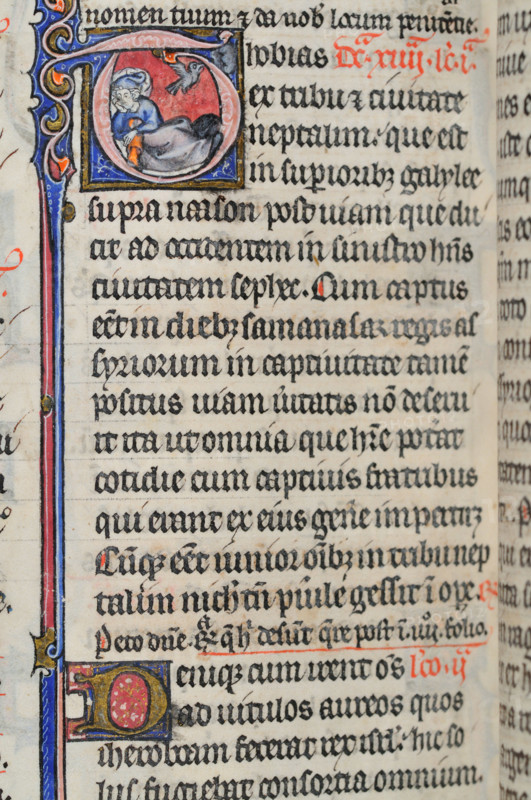 nomen tuum ⁊ da nob̄ locum penitētie.
Thobias Dca. xiiij. lc̄. ia.
ex tribu ⁊ ciuitate
neptalim: que est
in suꝑioribꝫ galylee
supra naason post uiam que du
cit ad occidentem in sinistro hn̄s
ciuitatem sephet. Cum captus
eēt in diebꝫ samanasar regis as
syriorum in captiuitate tamē
positus uiam ūitatis nō deseru
it ita ut omnia que hr̄e potāt
cotidie cum captiuis fratribus
qui erant ex eius geñe impertirꝫ
Cūqꝫ eēt iunior oīb; in tribu nep
talim nich̄ tn̄ puīle gessit ī oꝑe.
Peto dn̄e. qͣ h̄ desūt q̄re post ī. iiij. folio.
Deniqꝫ cum irent oēs lc̄o. ij
ad uitulos aureos quos
iheroboam fecerat rex isrl̄: hic so
lus fugiebat consortia omnium.